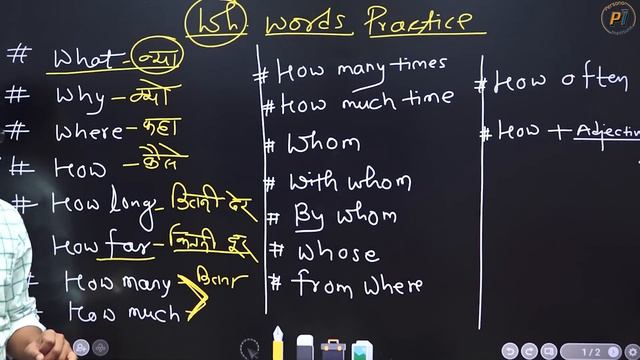 Wh words Practice
# What - क्या
# Why - क्यों
# Where - कहा
# How - कैसे
How long - कितनी देर
How far - कितनी दूर
# How many
How much
कितना
# How many times
# How much time
# Whom
# With whom
# By whom
# whose
# from where
# How often
# How + Adjecti
1 / 2